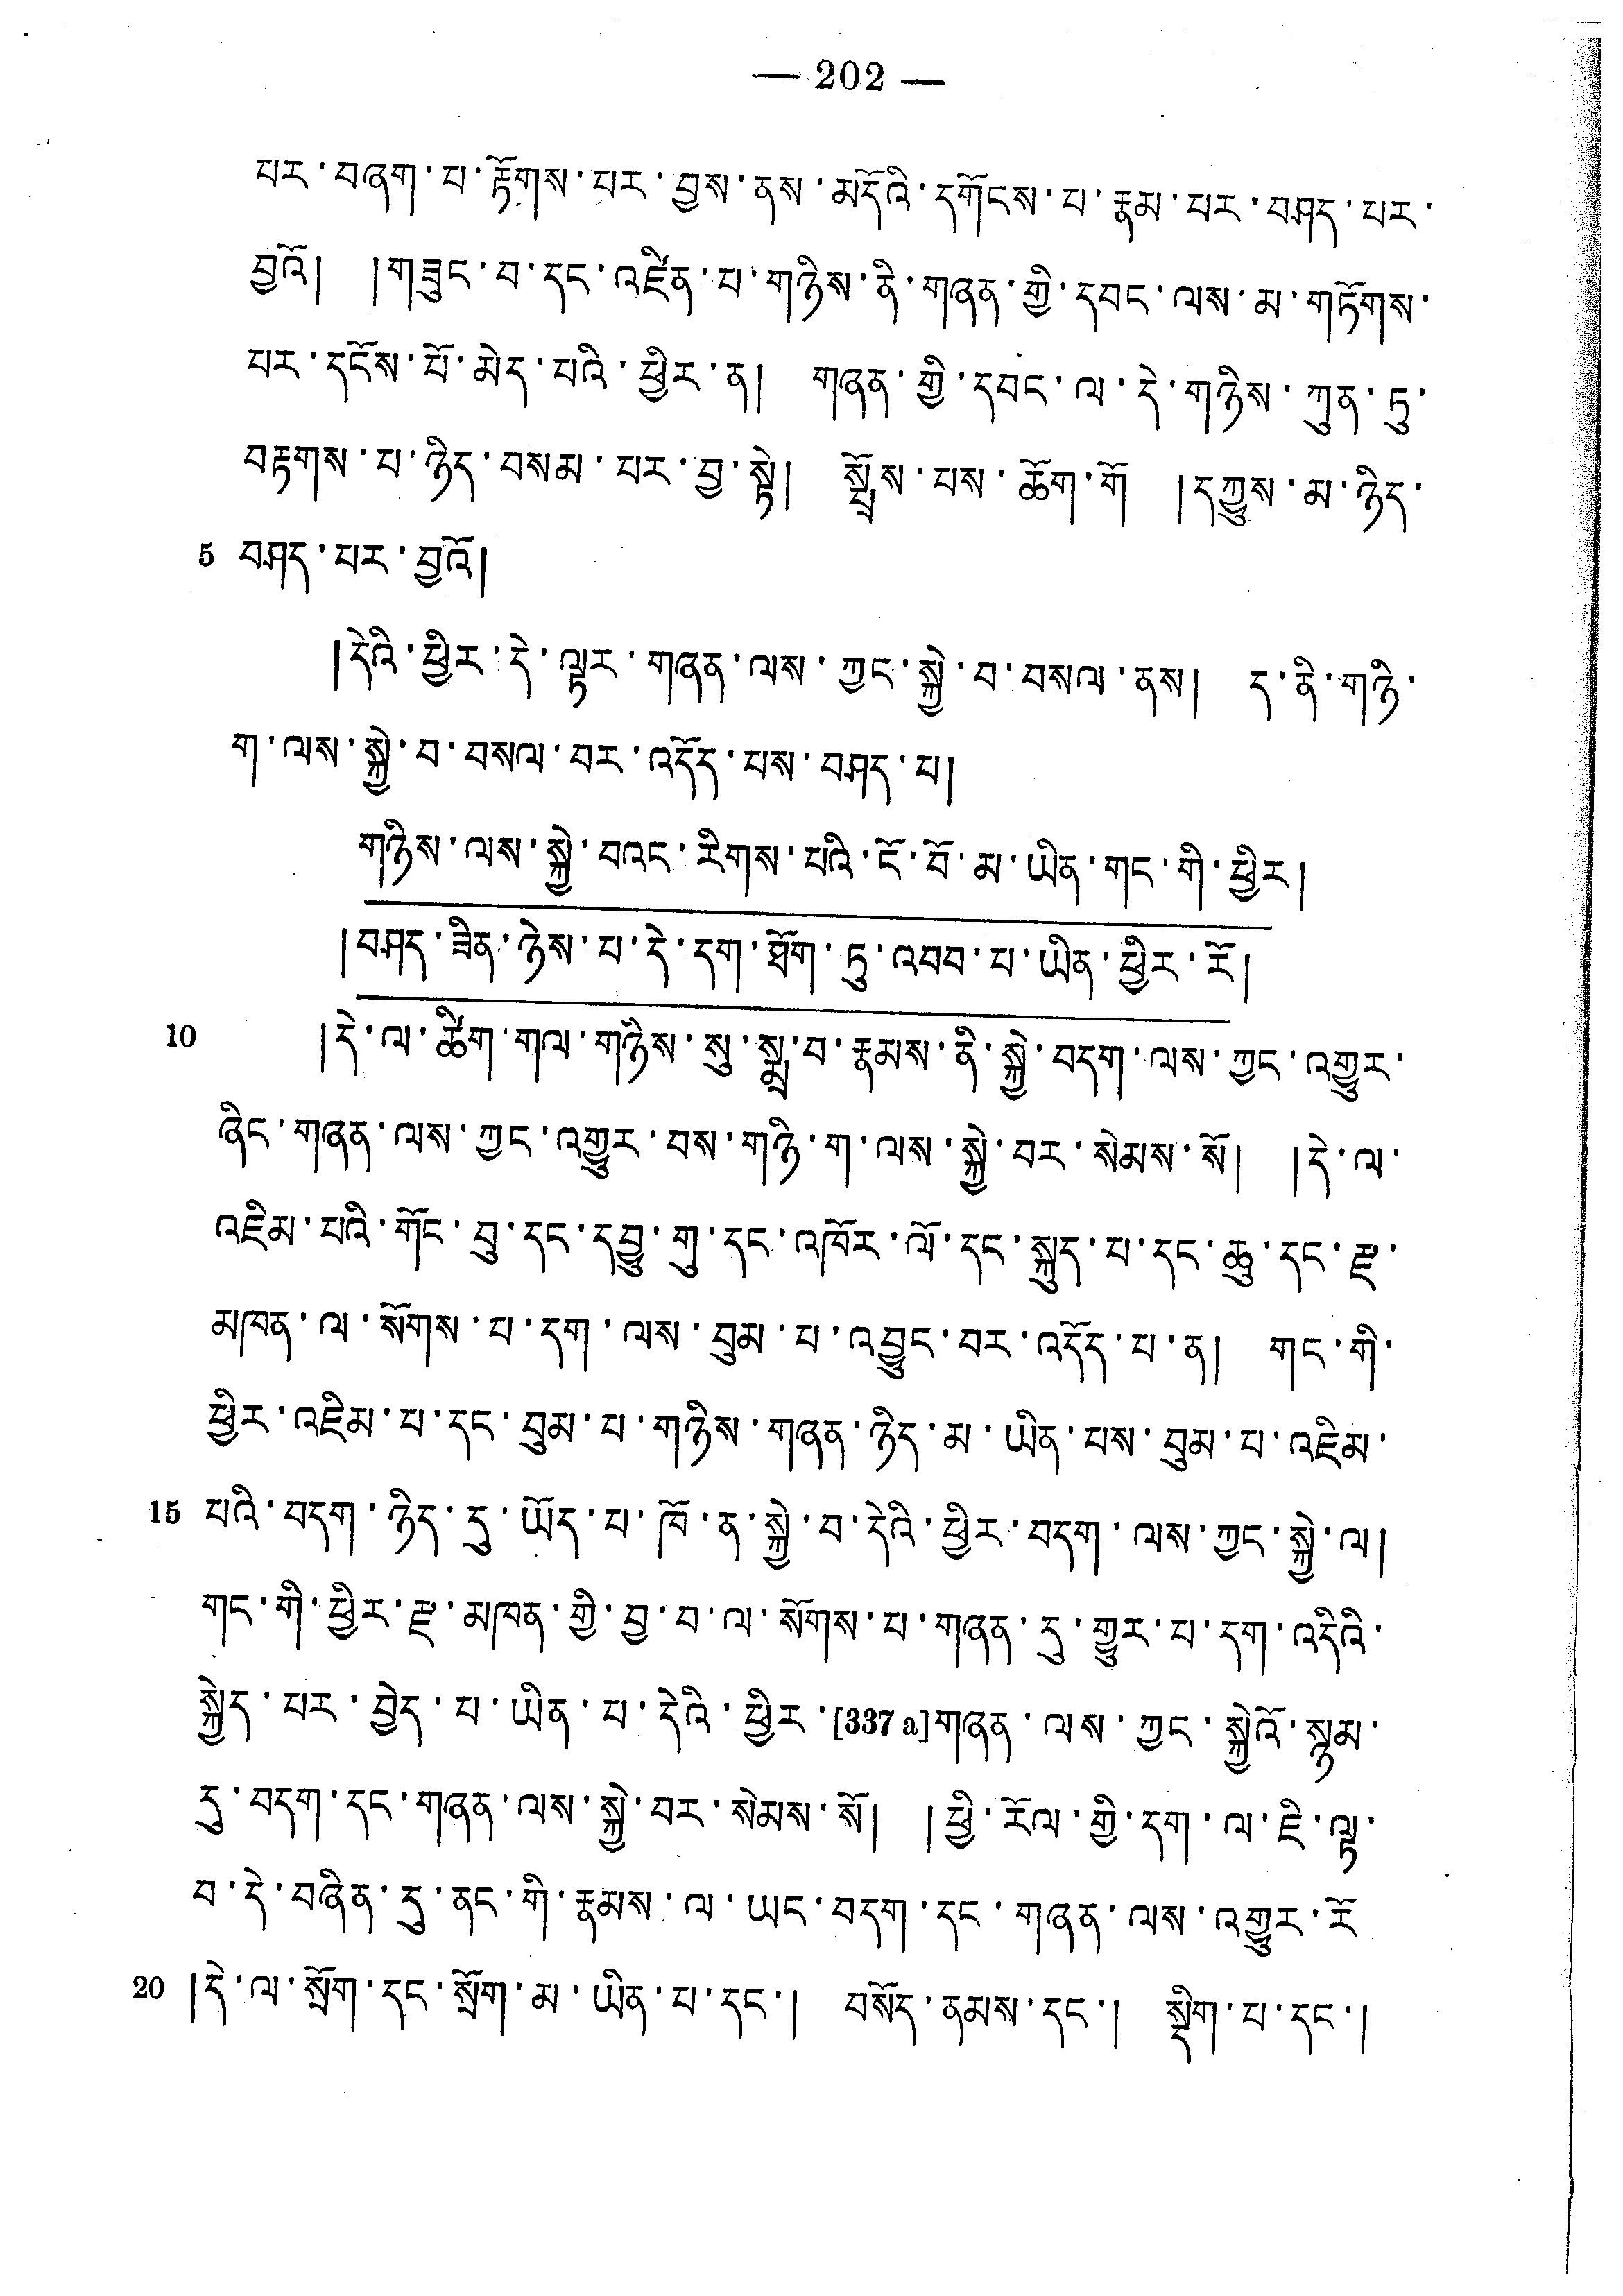 — 202 —
པར་བཞག་པ་རྟོགས་པར་བྱས་ནས་མདོའི་དགོངས་པ་རྣམ་པར་བཤད་པར་
བྱའོ། །གཟུང་བ་དང་འཛིན་པ་གཉིས་ནི་གཞན་གྱི་དབང་ལས་མ་གཏོགས་
པར་དངོས་པོ་མེད་པའི་ཕྱིར་ན། གཞན་གྱི་དབང་ལ་དེ་གཉིས་ཀུན་ཏུ་
བརྟགས་པ་ཉིད་བསམ་པར་བྱ་སྟེ། སྤྲོས་པས་ཆོག་གོ །དཀྱུས་མ་ཉིད་
5 བཤད་པར་བྱའོ།
།དེའི་ཕྱིར་དེ་ལྟར་གཞན་ལས་ཀྱང་སྐྱེ་བ་བསལ་ནས། ད་ནི་གཉི་
ག་ལས་སྐྱེ་བ་བསལ་བར་འདོད་པས་བཤད་པ།
གཉིས་ལས་སྐྱེ་བའང་རིགས་པའི་ངོ་བོ་མ་ཡིན་གང་གི་ཕྱིར།
།བཤད་ཟིན་ཉེས་པ་དེ་དག་ཐོག་ཏུ་འབབ་པ་ཡིན་ཕྱིར་རོ།
10 །དེ་ལ་ཚིག་གལ་གཉིས་སུ་སྨྲ་བ་རྣམས་ནི་སྐྱེ་བདག་ལས་ཀྱང་འགྱུར་
ཞིང་གཞན་ལས་ཀྱང་འགྱུར་བས་གཉི་ག་ལས་སྐྱེ་བར་སེམས་སོ། །དེ་ལ་
འཇིམ་པའི་གོང་བུ་དང་དབྱུ་གུ་དང་འཁོར་ལོ་དང་སྐུད་པ་དང་ཆུ་དང་རྫ་
མཁན་ལ་སོགས་པ་དག་ལས་བུམ་པ་འབྱུང་བར་འདོད་པ་ན། གང་གི་
ཕྱིར་འཇིམ་པ་དང་བུམ་པ་གཉིས་གཞན་ཉིད་མ་ཡིན་པས་བུམ་པ་འཇིམ་
15 པའི་བདག་ཉིད་དུ་ཡོད་པ་ཁོ་ན་སྐྱེ་བ་དེའི་ཕྱིར་བདག་ལས་ཀྱང་སྐྱེ་ལ།
གང་གི་ཕྱིར་རྫ་མཁན་གྱི་བྱ་བ་ལ་སོགས་པ་གཞན་དུ་གྱུར་པ་དག་འདིའི་
སྐྱེད་པར་བྱེད་པ་ཡིན་པ་དེའི་ཕྱིར་[337 a]གཞན་ལས་ཀྱང་སྐྱེའོ་སྙམ་
དུ་བདག་དང་གཞན་ལས་སྐྱེ་བར་སེམས་སོ། །ཕྱི་རོལ་གྱི་དག་ལ་ཇི་ལྟ་
བ་དེ་བཞིན་དུ་ནང་གི་རྣམས་ལ་ཡང་བདག་དང་གཞན་ལས་འགྱུར་རོ
20 །དེ་ལ་སྲོག་དང་སྲོག་མ་ཡིན་པ་དང་། བསོད་ནམས་དང་། སྡིག་པ་དང་།